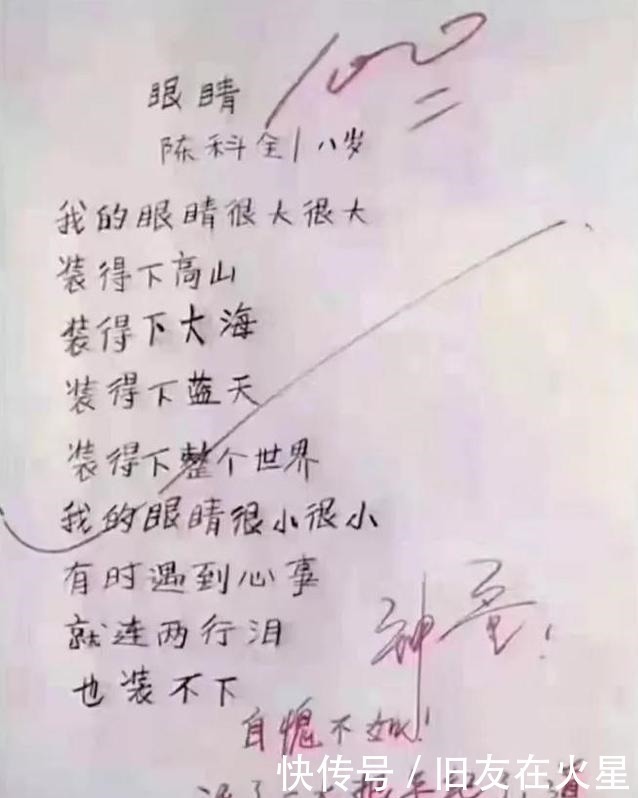 100
眼睛
陈科全 八岁
我的眼睛很大很大
装得下高山
装得下大海
装得下蓝天
装得下整个世界
我的眼睛很小很小
有时遇到心事
就连两行泪
也装不下
神童!
自愧不如!
快传号 / 旧友在火星